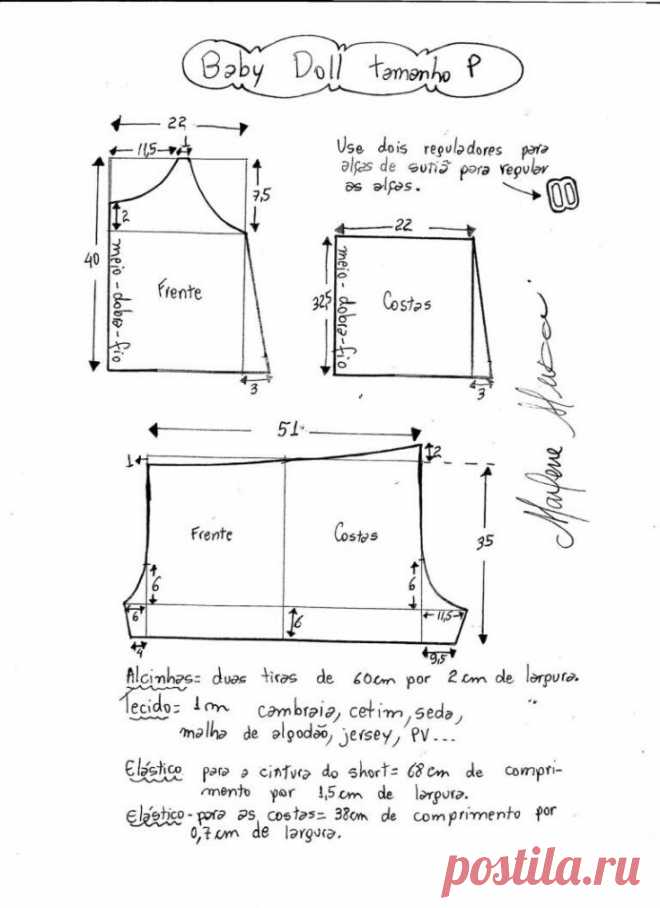 Baby Doll tamanho P
22
1
11,5
7,5
2
40
meio-dobra-fio
Frente
3
Use dois reguladores para
alças de sutiã para regular
as alças.
22
32,5
meio-dobra-fio
Costas
3
Marlene
51
1
2
Frente
Costas
35
6
6
6
6
11,5
4
9,5
Alcinhas= duas tiras de 60cm por 2cm de largura.
Tecido= 1m cambraia, cetim, seda,
malha de algodão, jersey, PV...
Elástico para a cintura do short= 68cm de compri-
mento por 1,5cm de largura.
Elástico-para as costas= 38cm de comprimento por
0,7cm de largura.
postila.ru